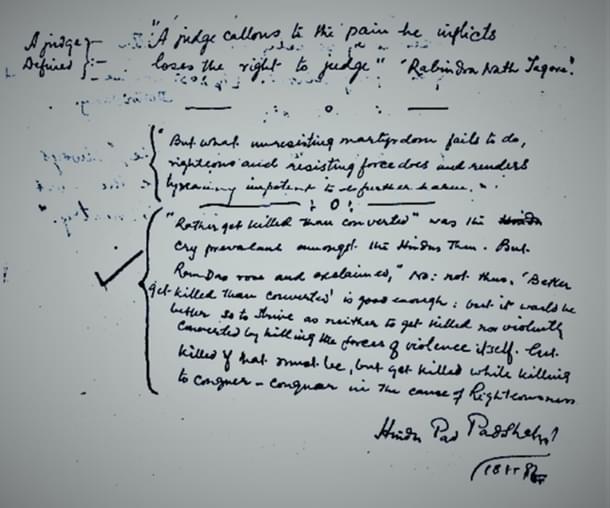 A judge
Defined :-
"A judge callous to the pain he inflicts
loses the right to judge" "Rabindra Nath Tagore".
"But what unresisting martyrdom fails to do,
righteous and resisting force does and renders
tyranny impotent to do further harm."
"Rather get killed than converted" was the
cry prevalent amongst the Hindus then. But
Ramdas rose and exclaimed, "No: not thus. 'Better
get killed than converted' is good enough: but it would be
better so to strive as neither to get killed nor violently
converted by killing the forces of violence itself. Get
killed if that must be, but get killed while killing
to conquer - conquer in the cause of Righteousness
Hindu Pad Padshahi